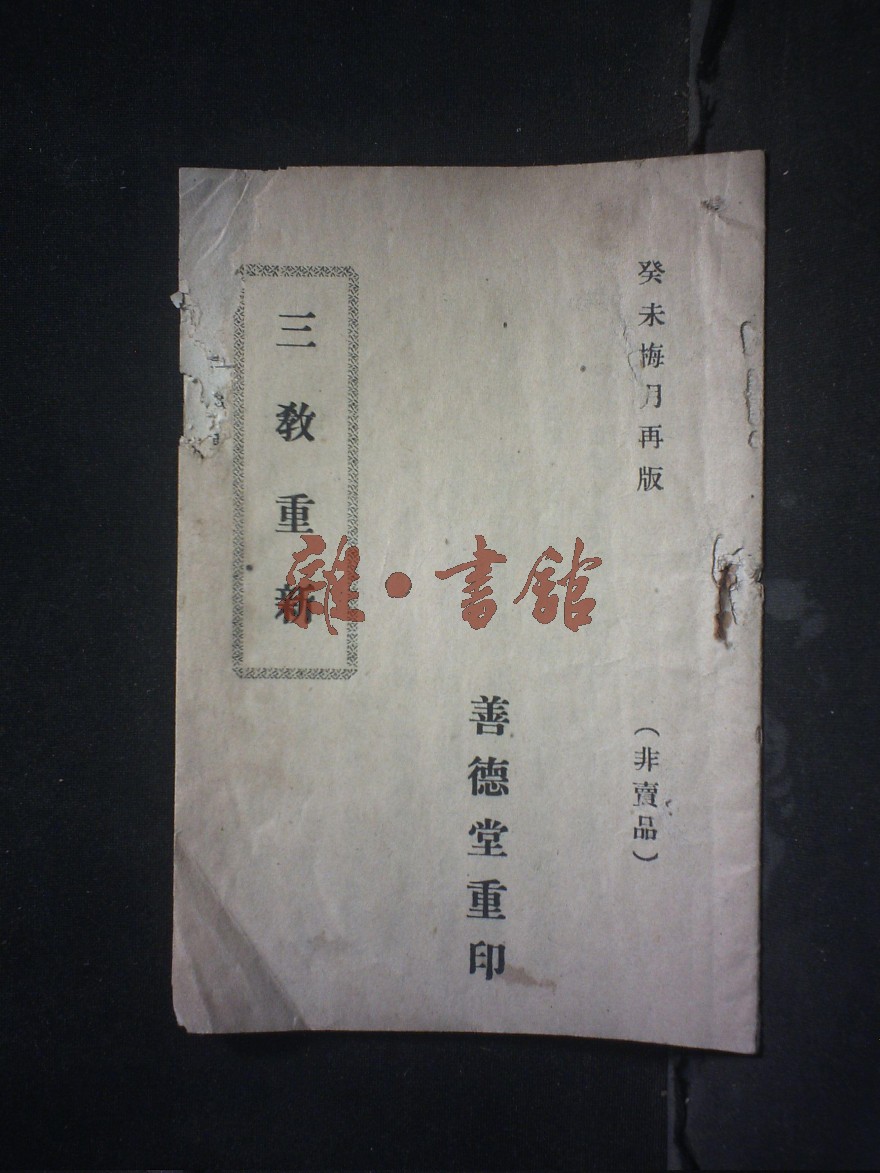 癸未梅月再版
(非賣品)
善德堂重印
三教重新
雜·書館